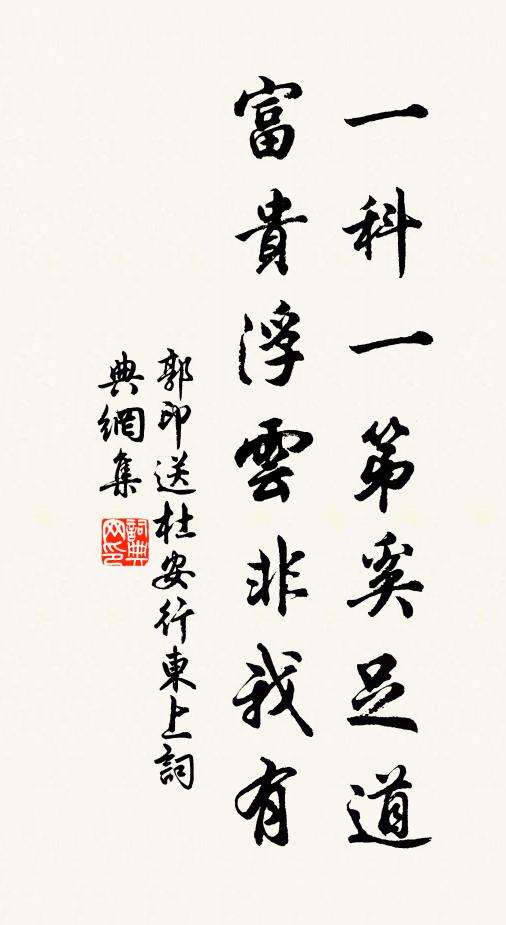 一科一第奚足道
富貴浮雲非我有
郭印送杜安行東上詞
典網集
詞典
网印